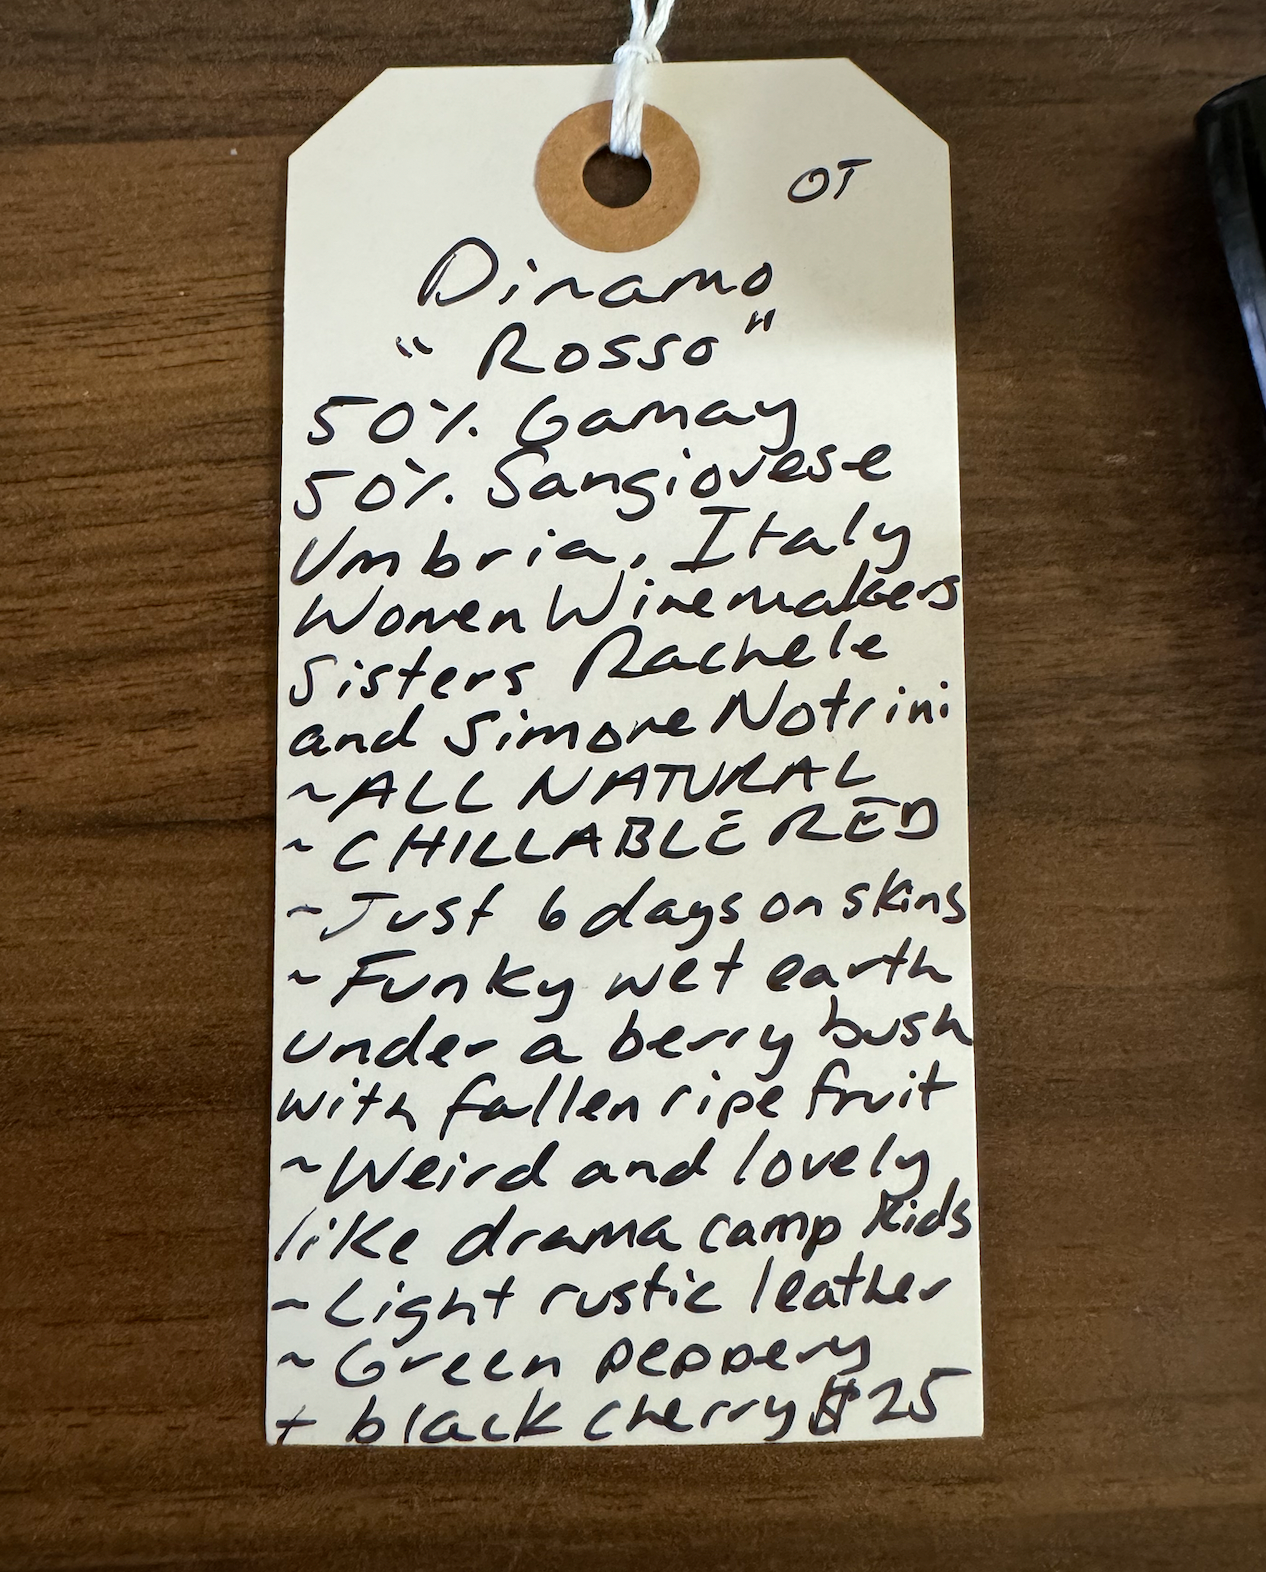 OT
Dinamo
"Rosso"
50% Gamay
50% Sangiovese
Umbria, Italy
Women Winemakers
Sisters Rachele
and Simone Notrini
~ALL NATURAL
~CHILLABLE RED
~Just 6 days on skins
~Funky wet earth
under a berry bush
with fallen ripe fruit
~Weird and lovely
like drama camp kids
~Light rustic leather
~Green peppery
+ black cherry $25